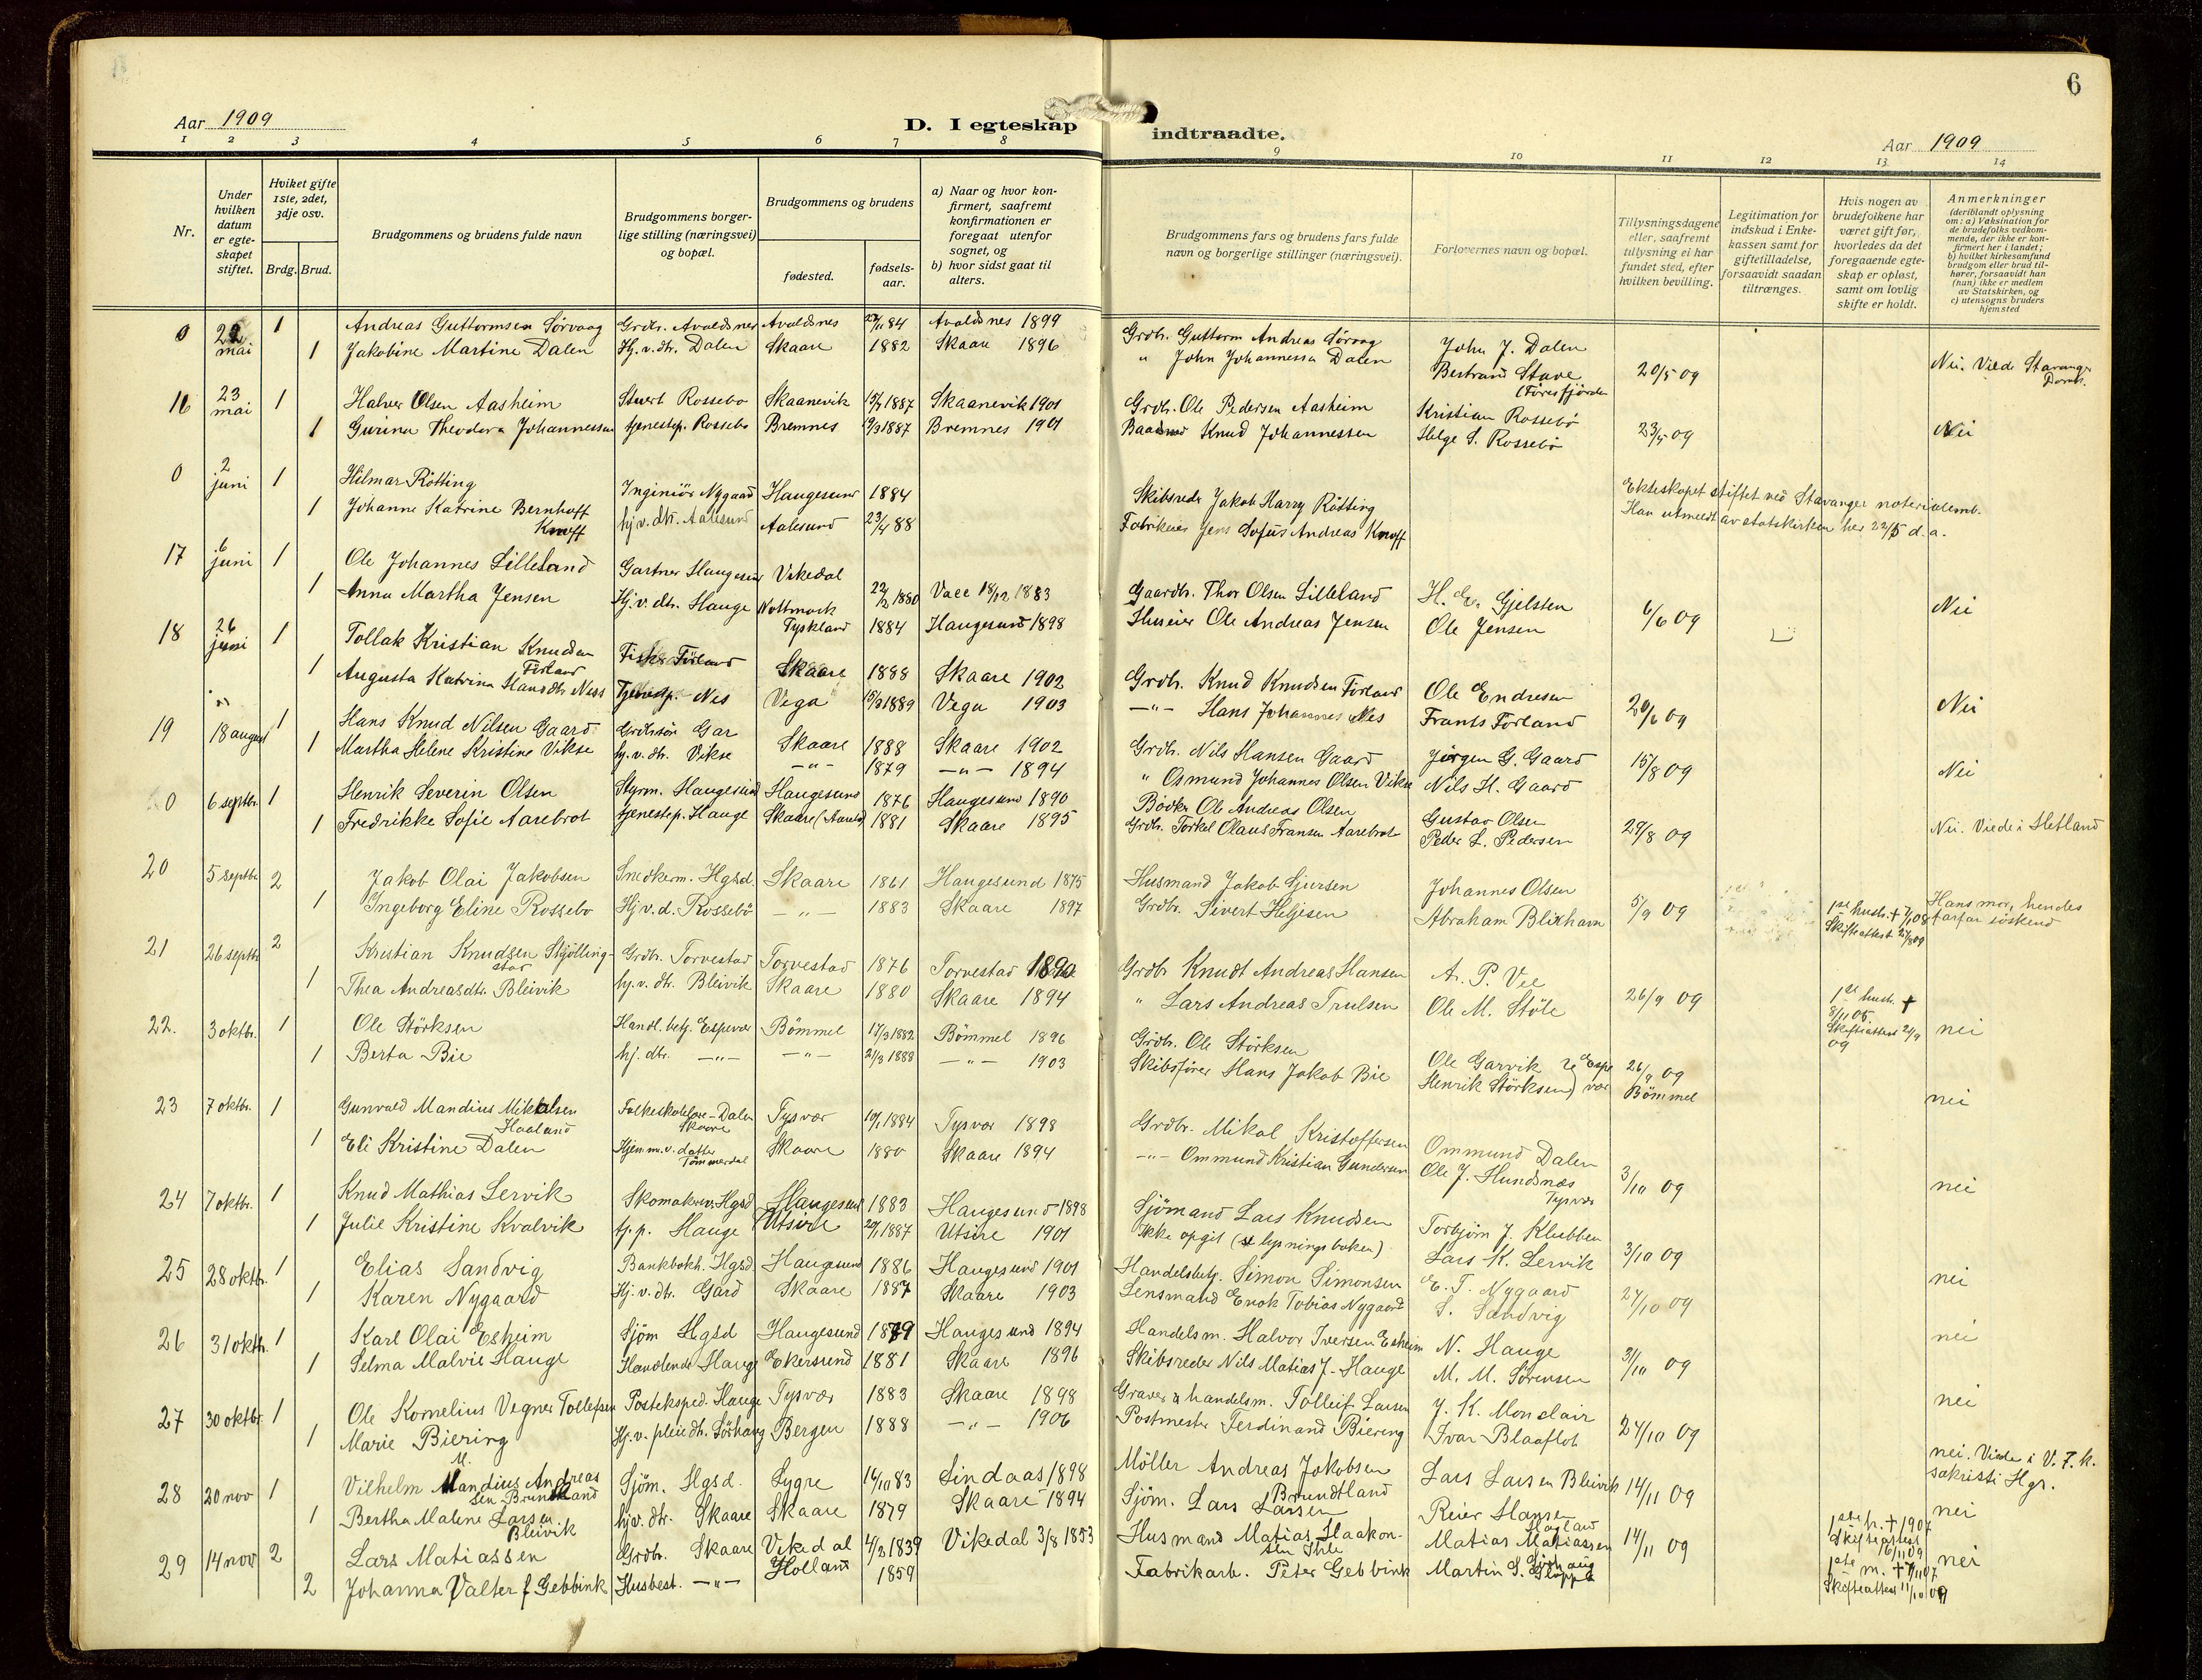 6
Aar 1909
D. I egteskap
indtraadte.
Aar 1909
1 2 3 4 5 6 7 8
9 10 11 12 13 14
Nr.
Under hvilken datum er egteskapet stiftet.
Hviket gifte 1ste, 2det, 3dje osv.
Brdg. Brud.
Brudgommens og brudens fulde navn
Brudgommens borgerlige stilling (næringsvei) og bopæl.
Brudgommens og brudens
fødested.
fødsels-aar.
a) Naar og hvor konfirmert, saafremt konfirmationen er foregaat utenfor sognet, og
b) hvor sidst gaat til alters.
Brudgommens fars og brudens fars fulde navn og borgerlige stillinger (næringsvei).
Forlovernes navn og bopæl.
Tillysningsdagene eller, saafremt tillysning ei har fundet sted, efter hvilken bevilling.
Legitimation for indskud i Enkekassen samt for giftetilladelse, forsaavidt saadan tiltrænges.
Hvis nogen av brudefolkene har været gift før, hvorledes da det foregaaende egteskap er opløst, samt om lovlig skifte er holdt.
Anmerkninger
(deriblandt oplysning om: a) Vaksination for de brudefolks vedkommende, der ikke er konfirmert her i landet; b) hvilket kirkesamfund brudgom eller brud tilhører, forsaavidt han (hun) ikke er medlem av Statskirken, og c) utensogns bruders hjemsted
0 22 mai 1 Andreas Guttormsen Sørvaag Grdbr. Avaldsnes Avaldsnes 84 Avaldsnes 1899 Grdbr. Guttorm Andreas Sørvaag John J. Dalen
1 Jakobine Martine Dalen Hj.v.dtr. Dalen Skaare 1882 Skaare 1896 " John Johannessen Dalen Bertrand Stave Førresfjorden 20/5 09 Nei. Viede Stavanger Domk.
16 23 mai 1 Halvor Olsen Aasheim Stuert Rossebø Skaanevik 1887 Skaanevik 1901 Grdbr. Ole Pedersen Aasheim Kristian Rossebø
1 Gurina Theodora Johannessen tjenestep. Rossebø Bremnes 1887 Bremnes 1901 Knud Johannessen Helge S. Rossebø 23/5 09 Nei
0 2 juni 1 Hilmar Røtting Ingeniør Nygaard Haugesund 1884 Skibsreder Jakob Harry Røtting Ekteskapet stiftet ved Stavanger notarialemb.
1 Johanne Katrine Bernhoft Knoff hj.v.dtr. Aalesund Aalesund 23/4 88 Fabrikeier Jens Sofus Andreas Knoff Han utmeldt av statskirken her 22/5 d.a.
17 6 juni 1 Ole Johannes Lilleland Gartner Haugesund Vikedal 1880 Gaardbr. Thor Olsen Lilleland H. Gjelsten
1 Anna Martha Jensen Hj.v.dtr. Hauge Tyskland 1884 Haugesund 1898 Huseier Ole Andreas Jensen Ole Jensen 6/6 09 Nei
18 26 juni 1 Tollak Kristian Knudsen Førland Fisker Førland Skaare 1888 Skaare 1902 Grdbr. Knud Knudsen Førland Ole Endresen
1 Augusta Katrina Hansdtr Ness Tjenestp. Nes Vega 15/3 1889 Vega 1903 —"— Hans Johannes Nes Frants Førland 20/6 09 Nei
19 18 august 1 Hans Knud Nilsen Gaard Grdbrsøn Gar Skaare 1888 Skaare 1902 Grdbr. Nils Hansen Gaard Jørgen G. Gaard
1 Martha Helene Kristine Vikse hj.v.dtr. Vikse —"— 1879 —"— 1894 " Osmund Johannes Olsen Vikse Nils H. Gaard 15/8 09 Nei
0 6 septbr. 1 Henrik Severin Olsen Styrm. Haugesund Haugesund 1876 Haugesund 1890 Bødker Ole Andreas Olsen Gustav Olsen
1 Fredrikke Sofie Aarebrot tjenestep. Hauge Skaare 1881 Skaare 1895 Grdbr. Torkel Olaus Fransen Aarebrot Peder L. Pedersen 29/8 09 Nei. Viede i Hetland
20 5 septbr 2 Jakob Olai Jakobsen Snedkerm. Hgsd. Skaare 1861 Haugesund 1875 Husmand Jakob Sjursen Johannes Olsen
1 Ingeborg Eline Rossebø Hj v. d. Rossebø —"— 1883 Skaare 1897 Grdbr. Sivert Heljesen Abraham Blikham 5/9 09 1ste hustr. † 08 Skifteattest Hans mor, hendes farfar søskend
21 26 septbr 2 Kristian Knudsen Skjøllingstad Grdbr. Torvestad Torvestad 1876 Torvestad 1890 Grdbr Knudt Andreas Hansen A. P. Vee
1 Thea Andreasdtr. Bleivik hj.v.dtr. Bleivik Skaare 1880 Skaare 1894 " Lars Andreas Trulsen Ole M. Støle 26/9 09 1ste hustr. † 8/11 05. Skifteattest 2/9 09 nei
22. 3 oktbr. 1 Ole Størksen Handl.betj. Espevær Bømmel 17/3 1882 Bømmel 1896 Grdbr. Ole Størksen Ole Garvik
1 Berta Bie hj. dtr. —"— —"— 21/3 1888 —"— 1903 Skibsfører Hans Jakob Bie Henrik Størksen Espevær 26/9 09 Bømmel nei
23 7 oktbr. 1 Gunvald Mandius Mikkalsen Haaland Folkeskolelærer Dalen Skaare Tysvær 1884 Tysvær 1898 Grdbr. Mikal Kristoffersen Ommund Dalen
1 Eli Kristine Dalen Hjem.v.datter Tømmerdal Skaare 1880 Skaare 1894 —"— Ommund Kristian Gundersen Ole J. Hundsnæs Tysvær 3/10 09 nei
24 7 oktbr. 1 Knud Mathias Lervik Skomakersv. Hgsd Haugesund 1883 Haugesund 1898 Sjømand Lars Knudsen Torbjørn J. Klubben
1 Julie Kristine Kvalvik tj.p. Hauge Utsire 1887 Utsire 1901 Ikke opgit (se lysningsboken) Lars K. Lervik 3/10 09 nei
25 28 oktbr. 1 Elias Sandvig Bankbokh. Hgsd Haugesund 1886 Haugesund 1901 Handelsbetj. Simon Simonsen E. T. Nygaard
1 Karen Nygaard Hj.v.dtr. Gard Skaare 1887 Skaare 1903 Lensmand Enok Tobias Nygaard S. Sandvig 24/10 09 nei
26 31 oktbr. 1 Karl Olai Esheim Sjøm Hgsd Haugesund 1879 Haugesund 1894 Handelsm. Halvor Iversen Esheim N. Hauge
1 Selma Malvie Hauge Handlende Hauge Ekersund 1881 Skaare 1896 Skibsreder Nils Matias J. Hauge M. M. Sørensen 31/10 09 nei
27 30 oktbr. 1 Ole Kornelius Vegner Tollefsen Posteksped. Hauge Tysvær 1883 Skaare 1898 Graver & handelsm. Tolleif Larsen J. K. Monclair
1 Marie Biering Hj.v. pleiedtr. Sørhaug Bergen 1888 —"— 1906 Postmester Ferdinand Biering Ivar Blaaflot 24/10 09 nei
28 20 nov 1 Vilhelm Mandius Andreassen Brundtland Sjøm. Hgsd. Lygre 14/10 83 Lindaas 1898 Møller Andreas Jakobsen Brundtland Lars Larsen Bleivik 14/11 09 nei. Viede i V. F. k. sakristi Hgs.
1 Bertha Malene Larsen Bleivik hj.v.dtr. Skaare Skaare 1879 Skaare 1894 Sjøm. Lars Larsen Reier Hansen nei
29 14 nov 2 Lars Matiassen Grdbr. Skaare Vikedal 1839 Vikedal 3/8 1853 Husmand Matias Haakonsen Matias Matiassen 14/11 09 1ste h. † 1907 Skifteattest nei
2 Johanna Valter f Gebbink Husbest. —"— Holland 1859 Fabrikarb. Peter Gebbink Martin S. 1ste m. † 07 Skifteattest 11/10 09